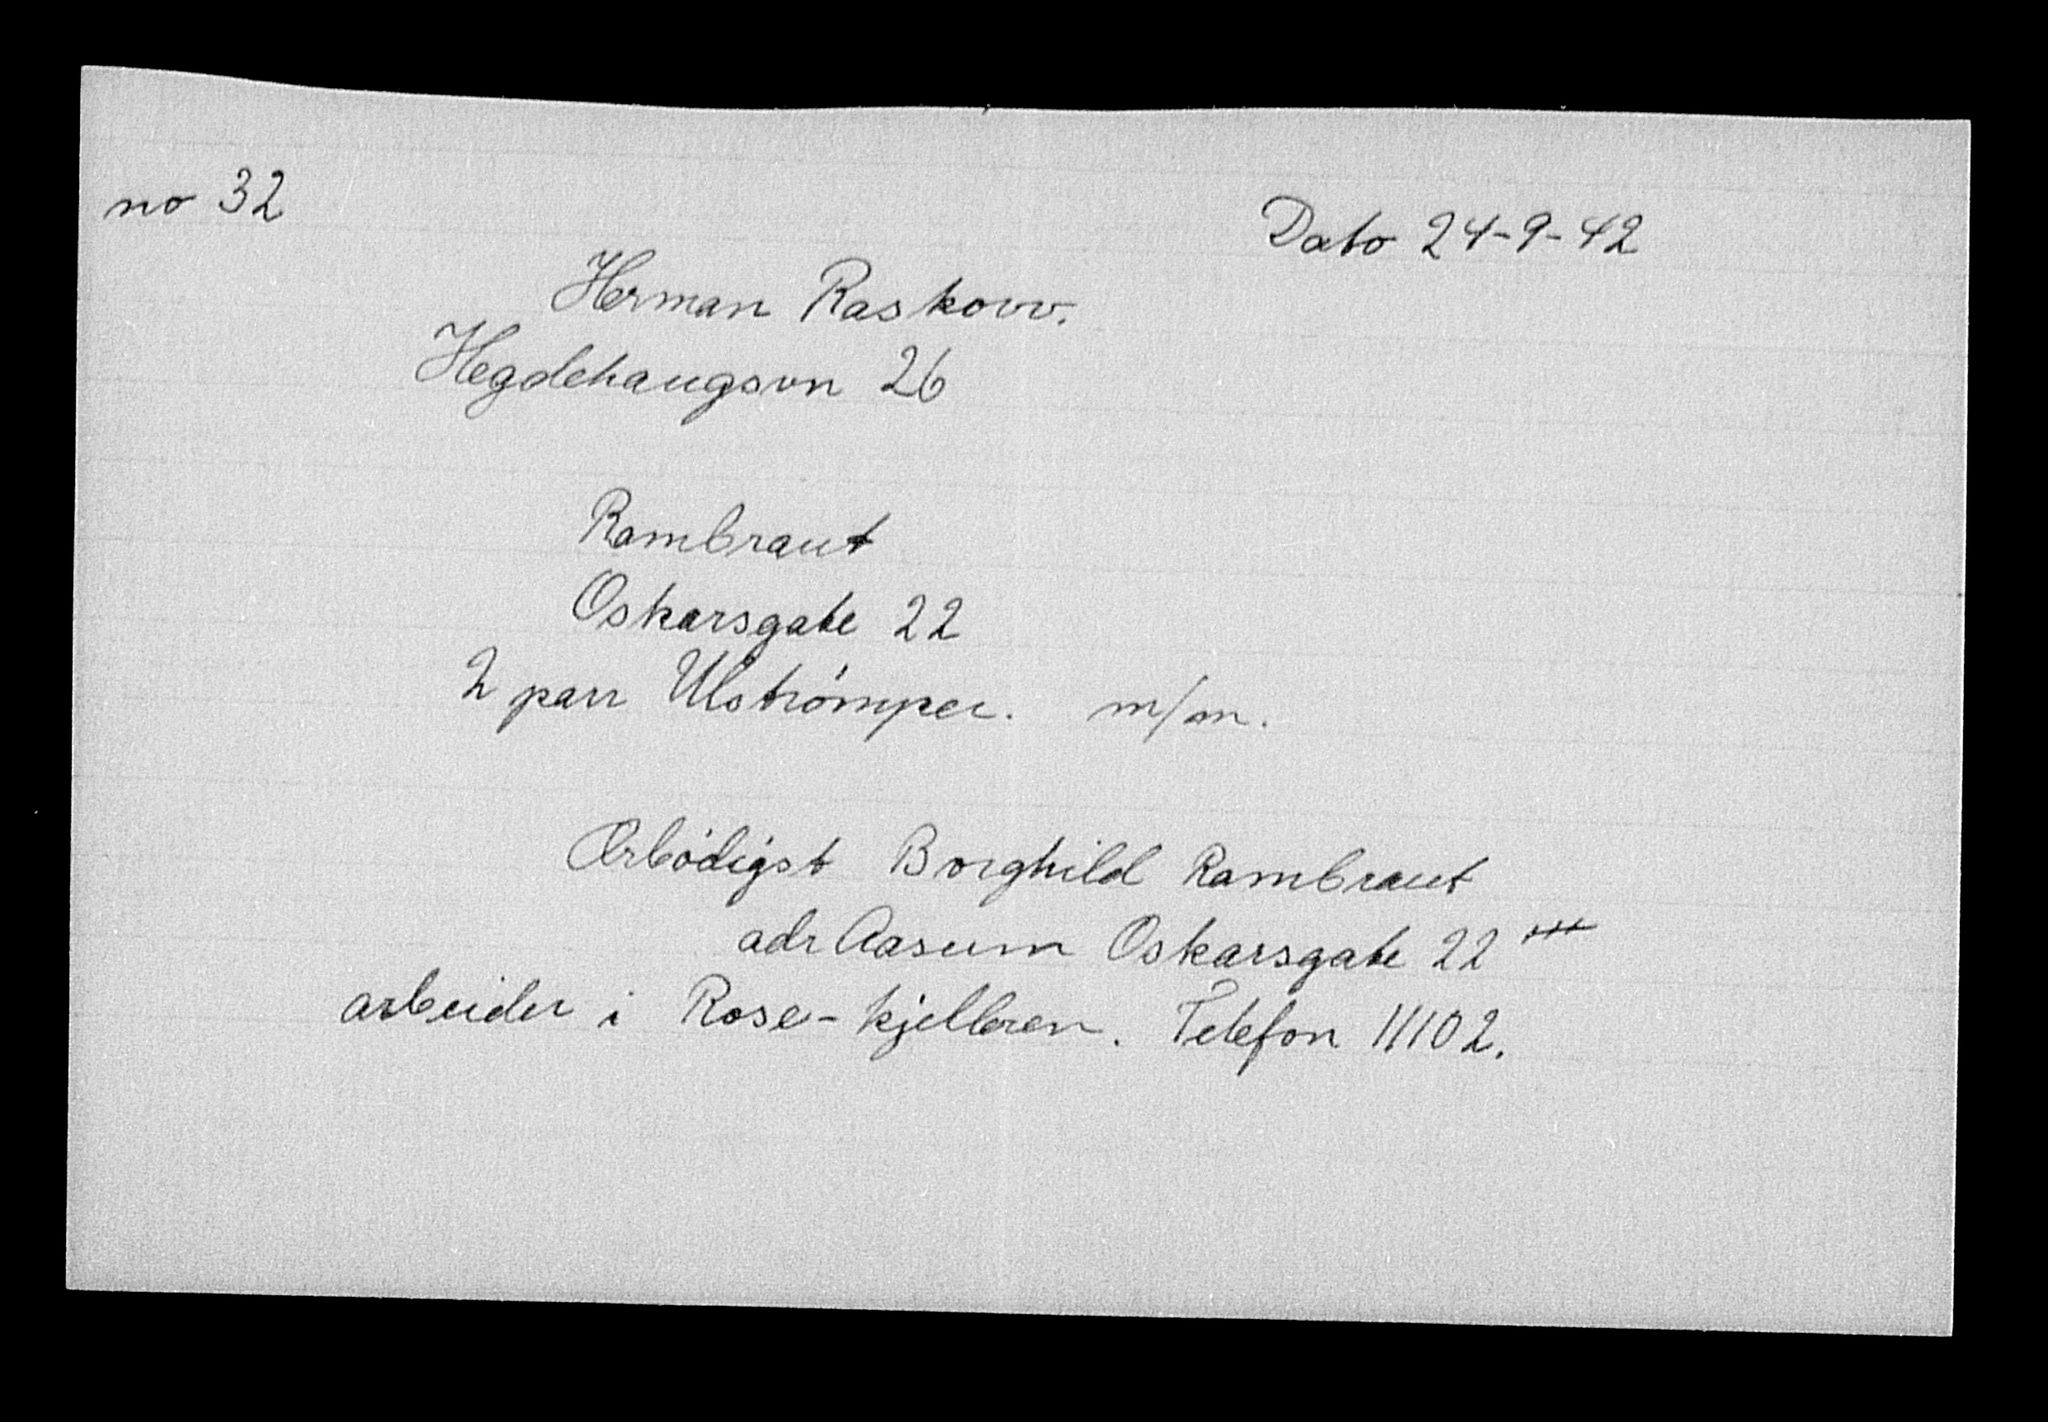 no 32
Dato 24-9-42
Herman Raskow.
Hegdehaugsvn 26
Rambraut
Oskarsgate 22
2 parr Ulstrømper. m/m.
Ærbødigst Borghild Rambraut
adr Aasum Oskarsgate 22 III
arbeider i Rose-kjelleren. Telefon 11102.